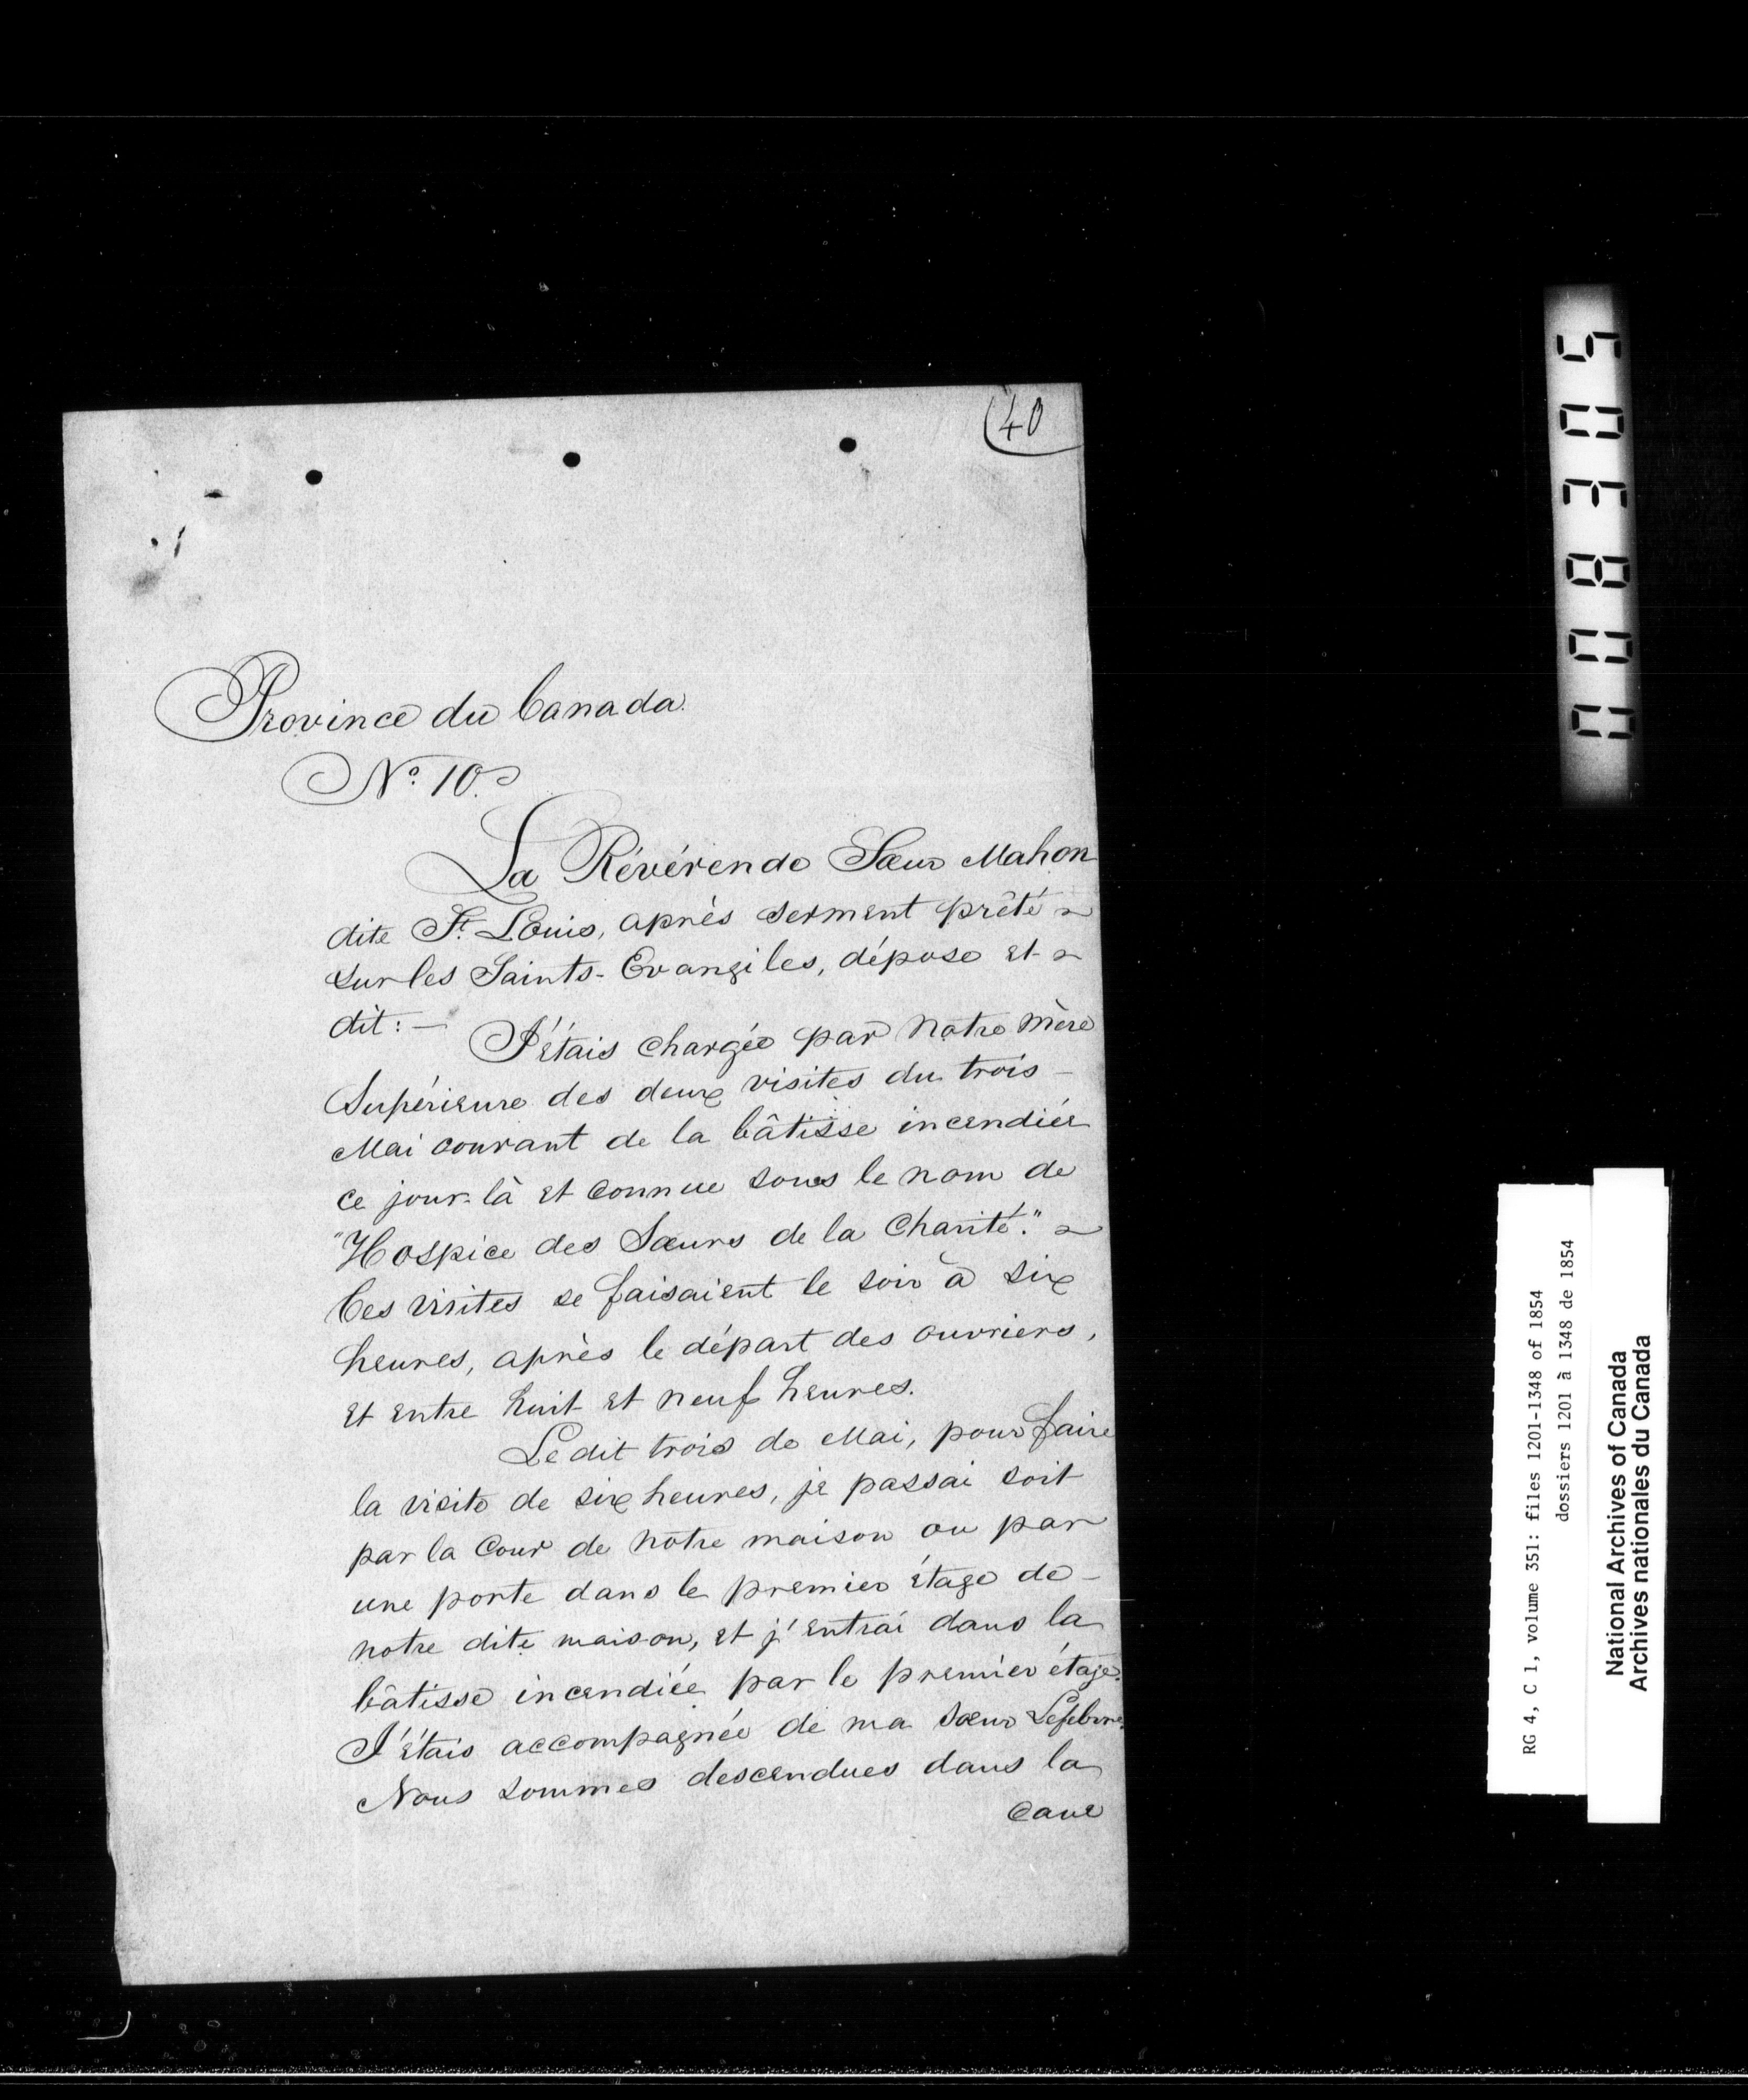 40
Province du Canada.
No. 10.
La Révérende Sœur Mahon
dite St. Louis, après serment prêté
sur les Saints-Evangiles, dépose et
dit : —
J'étais chargée par notre mère
Supérieure des deux visites du trois —
Mai courant de la bâtisse incendiée
ce jour-là et connue sous le nom de
"Hospice des Sœurs de la Charité."
Ces visites se faisaient le soir à six
heures, après le départ des ouvriers,
et entre huit et neuf heures.
Le dit trois de Mai, pour faire
la visite de six heures, je passai soit
par la Cour de notre maison ou par
une porte dans le premier étage de -
notre dite maison, et j'entrai dans la
bâtisse incendiée par le premier étage.
J'étais accompagnée de ma sœur Lefebvre.
Nous sommes descendues dans la
Cave
008305
RG 4, C 1, volume 351: files 1201-1348 of 1854
dossiers 1201 à 1348 de 1854
National Archives of Canada
Archives nationales du Canada